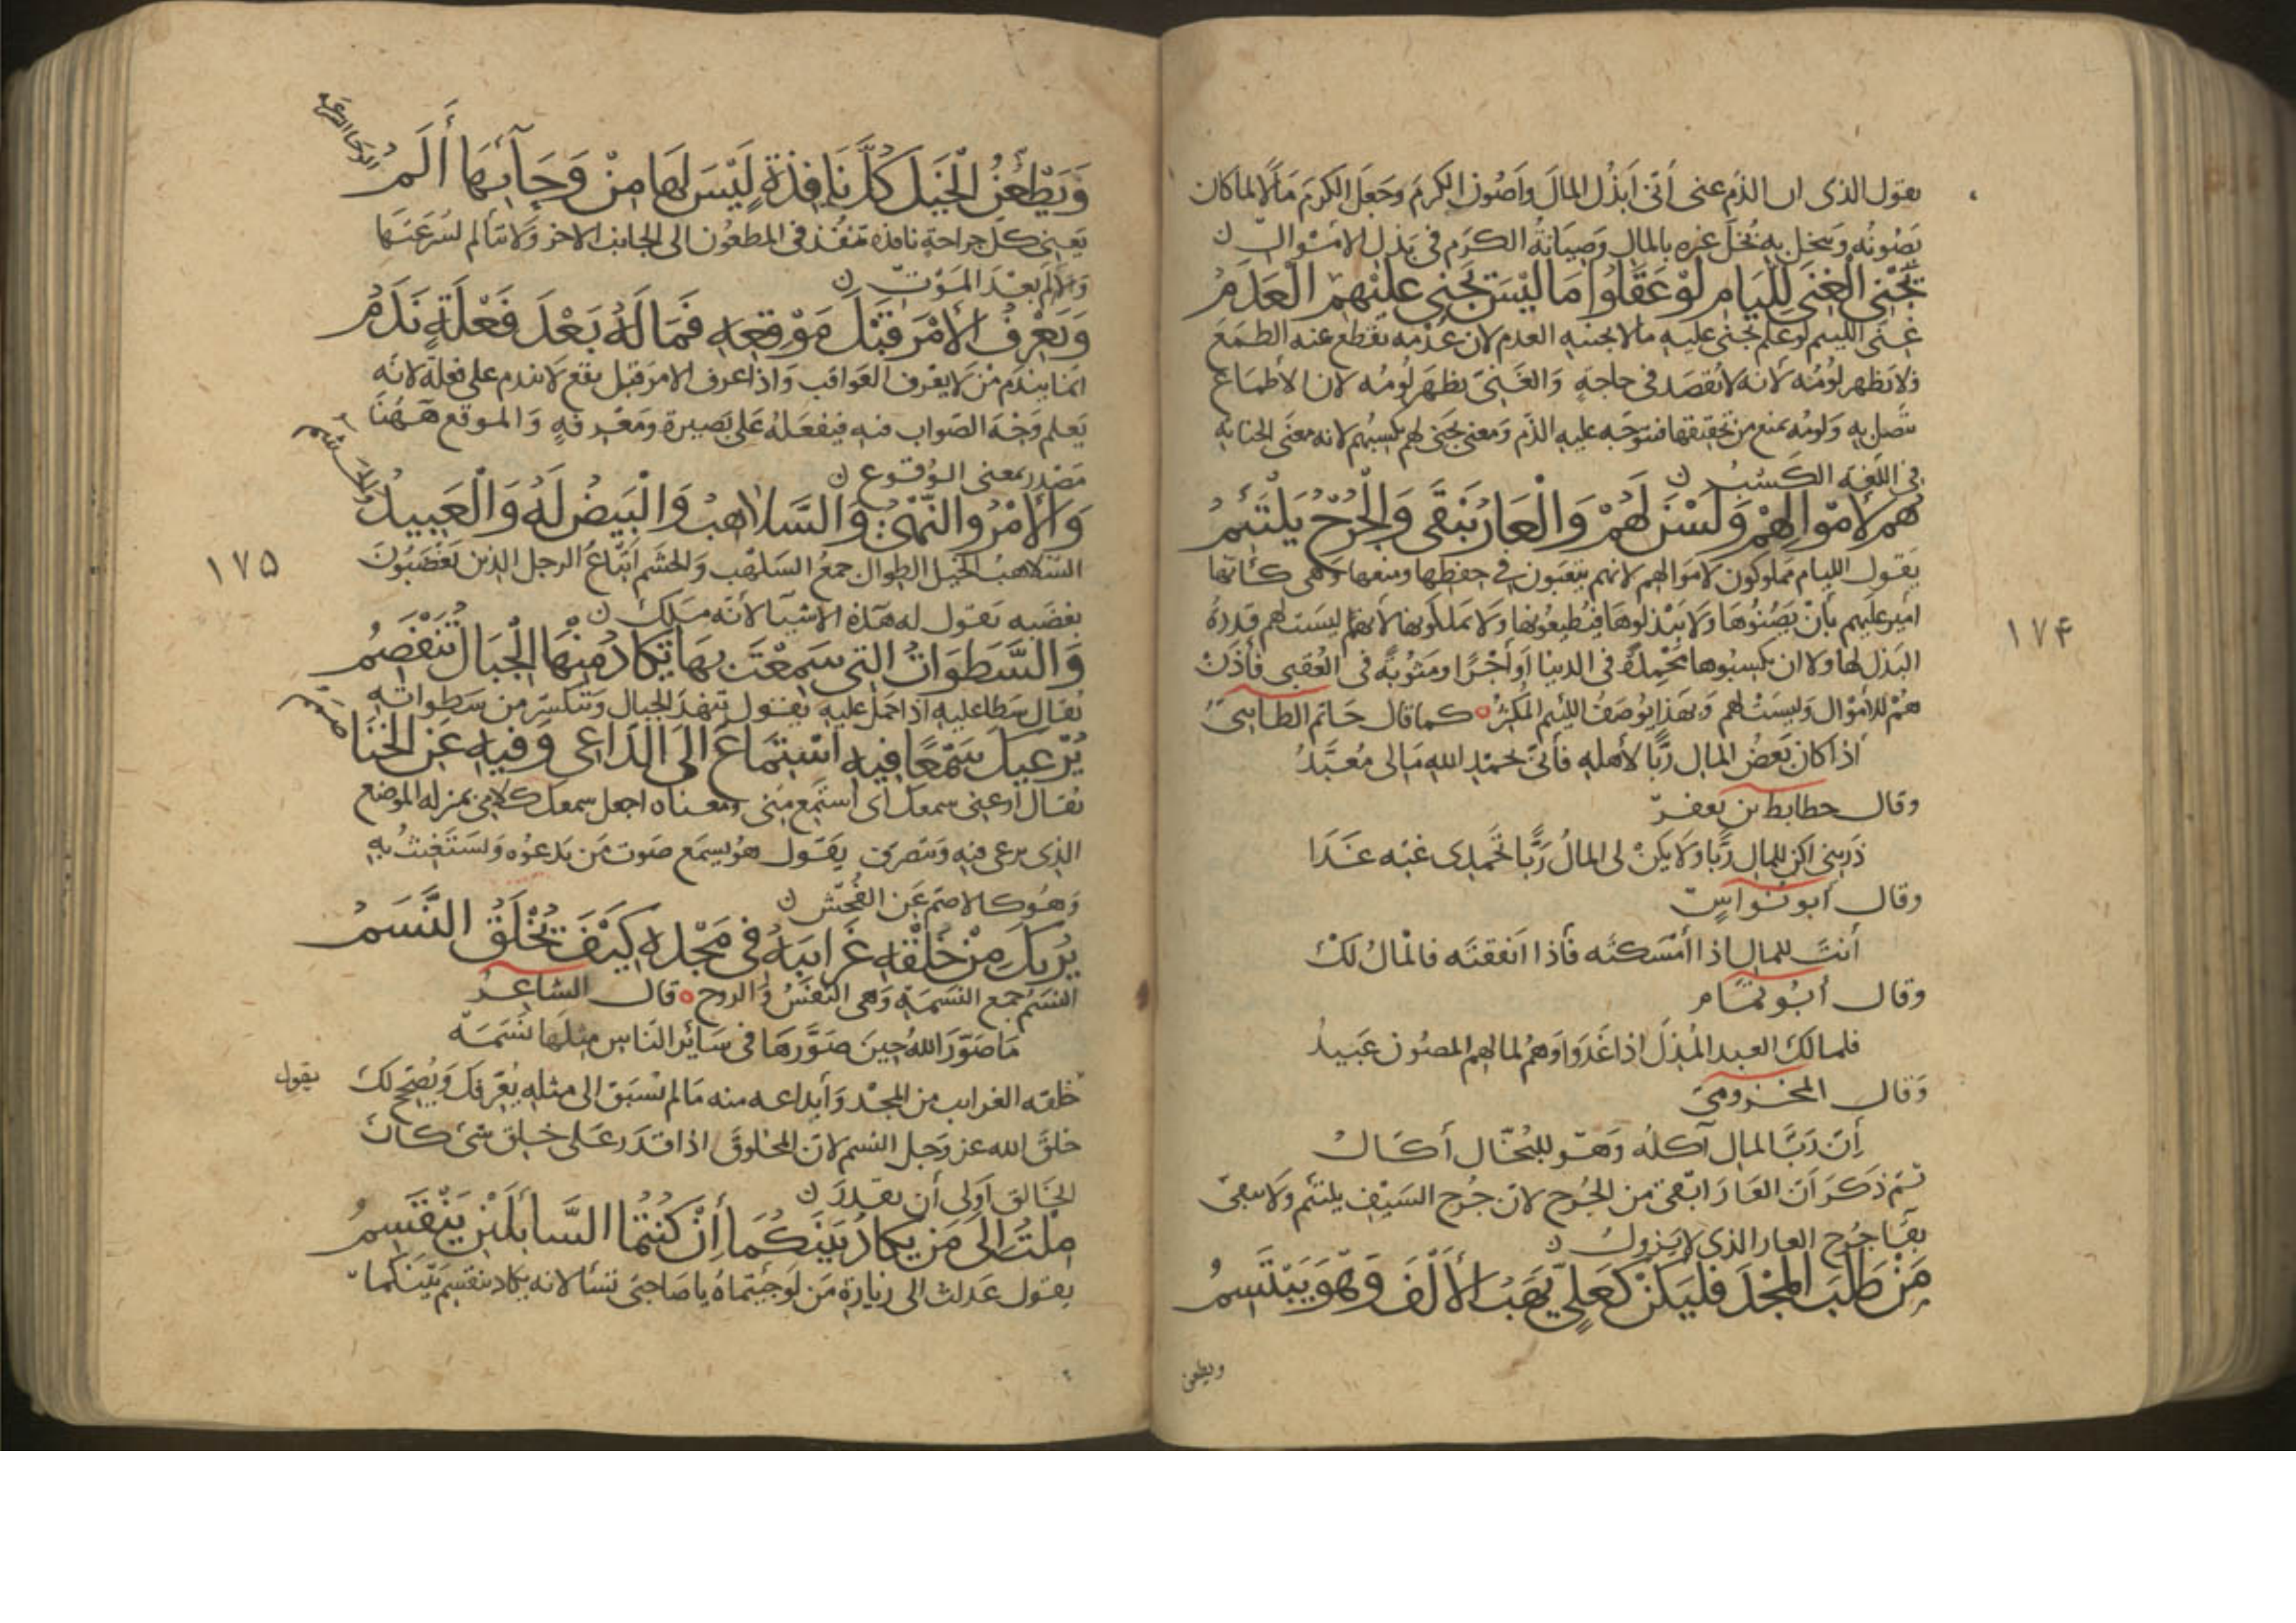 يقول الذي ان الذم عنى أنى ابذل المال وأصون الكرم وجعل الكرم مالا لما كان
يصونه ويبخل به بخل غيره بالمال وصيانة الكرم في بذل الاموال ن
يَجْنِي الْغِنَى لِلِّيَامِ لَوْ عَقَلُوا مَا لَيْسَ يَجْنِي عَلَيْهِمُ الْعَدَمُ
غنى الليم لو علم يجنى عليه مالا يجنيه العدم لان عدمه يقطع عنه الطمع
فلا يظهر لومه لانه لا يقصد في حاجة والغنى يظهر لومه لان الأطماع
تتصل به ولومه يمنع من تحقيقها فيتوجه عليه الذم ومعنى يجنى لهم يكسبهم لانه معنى الجناية
في اللغة الكسب ن
هُمْ لِأَمْوَالِهِمْ وَلَسْنَ لَهُمْ وَالْعَارُ يَبْقَى وَالْجُرْحُ يَلْتَئِمُ
يقول الليام مملوكون لاموالهم لانهم يتعبون في حفظها ومنعها وهي كأنها
امير عليهم بأن يصونوها ولا يبذلوها فيطيعونها ولا يملكونها لأنهم ليست لهم قدرة
البذل لها ولا ان يكسبوها محمدة في الدنيا أو أجرا ومثوبة في العقبى فأذن
هم للأموال وليست لهم وبهذا يوصف الليم المكثر كما قال حاتم الطايى
اذا كان بعض المال ربا لأهله فأنى بحمد الله مالى معبد
وقال حطايط بن يعفر
ذريني اكن للمال ربا ولا يكن لى المال ربا تحمدى غبه غدا
وقال أبو نواس
أنت للمال اذا أمسكته فأذا انفقته فالمال لك
وقال أبو تمام
فلمالك العبد المذل اذا غدوا وهم لمالهم المصون عبيد
وقال المخزومى
أن رب المال آكله وهو للبخال أكال
ثم ذكر أن العار ابقى من الجرح لان جرح السيف يلتئم ولا يبقى
بقا جرح العار الذي لا يزول ن
مَنْ طَلَبَ الْمَجْدَ فَلْيَكُنْ كَعَلِيٍّ يَهَبُ الْأَلْفَ وَهْوَ يَبْتَسِمُ
ويطعن
۱۷۴
الوحا السرعة
وَيَطْعُنُ الْخَيْلَ كُلَّ نَافِذَةٍ لَيْسَ لَهَا مِنْ وَحَآئِهَا أَلَمُ
يعني كل جراحة نافذة تنفذ في المطعون الى الجانب الاخر ولا يتألم لسرعتها
والالم بعد الموت ن
وَيَعْرِفُ الْأَمْرَ قَبْلَ مَوْقِعِهِ فَمَا لَهُ بَعْدَ فَعْلَةٍ نَدَمُ
انما يندم من لا يعرف العواقب واذا عرف الامر قبل يقع لا يندم على فعله لانه
يعلم وجه الصواب فيه فيفعله على بصيرة ومعرفة والموقع ههنا
مصدر بمعنى الوقوع ن
وَالْأَمْرُ وَالنَّهْيُ وَالسَّلَاهِبُ وَالْبِيضُ لَهُ وَالْعَبِيدُ
والحشم
السلاهب الخيل الطوال جمع السلهب والحشم اتباع الرجل الذين يغضبون
بغضبه يقول له هذه الاشيا لأنه ملك ن
وَالسَّطَوَاتُ الَّتِي سَمِعْتَ بِهَا تَكَادُ مِنْهَا الْجِبَالُ تَنْقَصِمُ
يقال سطا عليه اذا حمل عليه يقول تنهد الجبال وتنكسر من سطواته
يُرْعِيكَ سَمْعًا فِيهِ اسْتِمَاعٌ إِلَى الدَّاعِي وَفِيهِ عَنِ الْخَنَا
صمم
يقال أرعنى سمعك أى استمع منى ومعناه اجعل سمعك كلامى بمنزلة الموضع
الذى يرعى فيه ويتصرف يقول هو يسمع صوت من يدعوه ويستغيث به
وهو كالاصم عن الفحش ن
يُرِيكَ مِنْ خَلْقِهِ غَرَائِبَهُ فِي مَجْدِهِ كَيْفَ تُخْلَقُ النَّسَمُ
النسم جمع النسمة وهي النفس والروح قال الشاعر
ما صور الله حين صورها في سائر الناس مثلها نسمه
يقول
خلقه الغرايب من المجد وأبداعه منه مالم يسبق الى مثله يعرفك ويصحح لك
خلق الله عز وجل النسم لان المخلوق اذا قدر على خلق شئ كان
الخالق اولى أن يقدر ن
مِلْتُ إِلَى مَنْ يَكَادُ بَيْنَكُمَا أَنْ كُنْتُمَا السَّائِلَيْنِ يَنْقَسِمُ
يقول عدلت الى زيارة من لو جئتماه يا صاحبى تسألانه يكاد ينقسم بينكما
۱۷۵